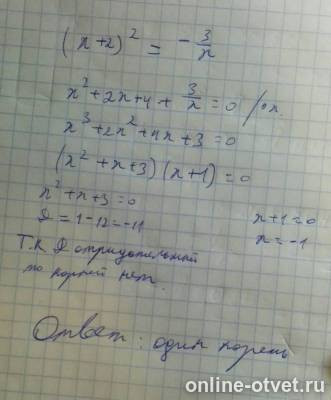 (x+2)² = -3/x
x²+2x+4+3/x=0 /·x
x³+2x²+4x+3=0
(x²+x+3)(x+1)=0
x²+x+3=0
D=1-12=-11
x+1=0
x=-1
Т.к D отрицательный
то корней нет.
Ответ: один корень
online-otvet.ru